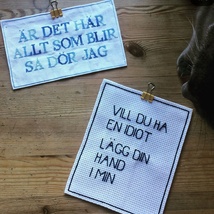 ÄR DET HÄR
ALLT SOM BLIR
SÅ DÖR JAG
VILL DU HA
EN IDIOT
LÄGG DIN
HAND
I MIN